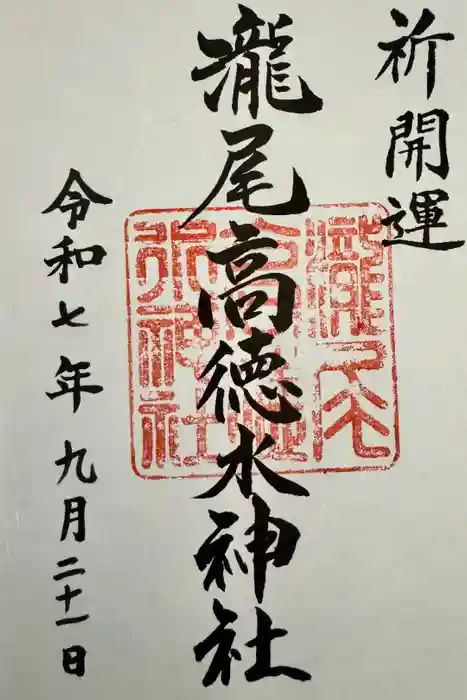 祈開運
瀧尾高徳水神社
令和七年九月二十一日
瀧尾
高徳
水神社